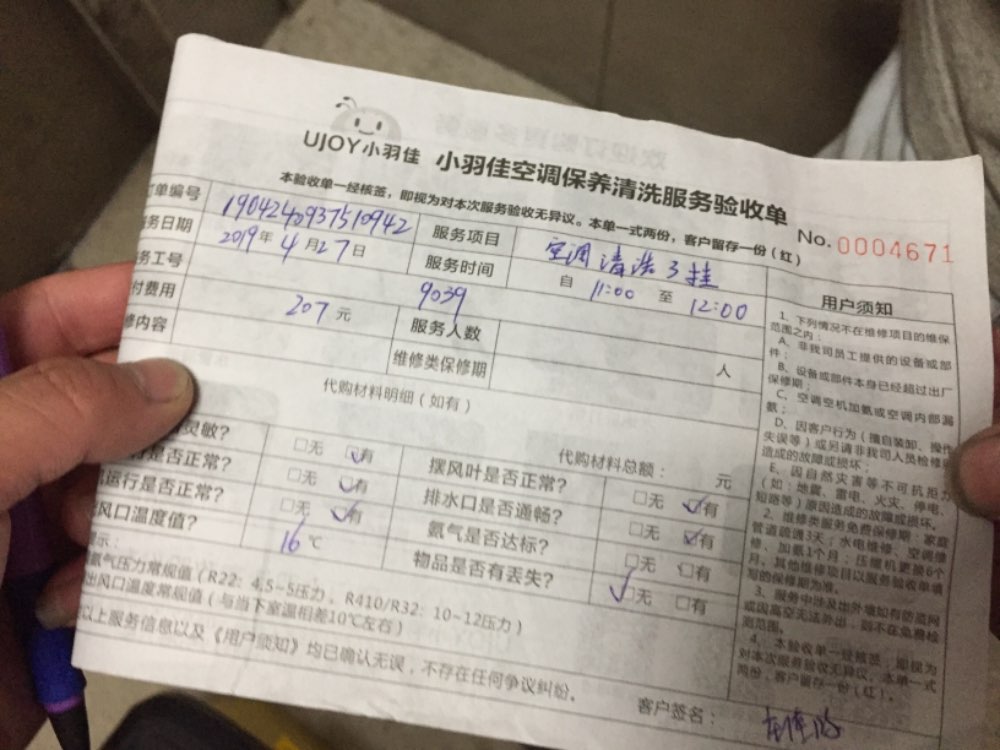 UJOY小羽佳 小羽佳空调保养清洗服务验收单
本验收单一经核签，即视为对本次服务验收无异议。本单一式两份，客户留存一份（红）
No. 0004671
订单编号 1904240937510942 服务项目 空调清洗3挂
务日期 2019年4月27日 服务时间 自 11:00 至 12:00
务工号 9039
付费用 207 元 服务人数 人
修内容 维修类保修期
代购材料明细（如有）
代购材料总额： 元
灵敏？ □无 □有 摆风叶是否正常？ □无 □有
是否正常？ □无 □有 排水口是否通畅？ □无 □有
运行是否正常？ □无 □有 氨气是否达标？ □无 □有
风口温度值？ 16℃ 物品是否有丢失？ □无 □有
示：
氨气压力常规值（R22：4.5~5压力，R410/R32：10~12压力）
出风口温度常规值（与当下室温相差10℃左右）
以上服务信息以及《用户须知》均已确认无误，不存在任何争议纠纷。
客户签名：
用户须知
1、下列情况不在维修项目的维保
范围之内：
A、非我司员工提供的设备或部
件；
B、设备或部件本身已经超过出厂
保修期；
C、空调空机加氨或空调内部漏
氨；
D、因客户行为（擅自装卸、操作
失误等）或另请非我司人员检修
造成的故障或损坏；
E、因自然灾害等不可抗拒力
（如：地震、雷电、火灾、停电、
短路等）原因造成的故障或损坏。
2、维修类服务免费保修期：家庭
管道疏通3天；水电维修、空调维
修、加氨1个月；压缩机更换6个
月，其他维修项目以服务验收单填
写的保修期为准。
3、服务中涉及出外墙如有防盗网
或因高空无法外出，则不在免费检
测范围。
4、本验收单一经核签，即视为
对本次服务验收无异议，本单一式
两份，客户留存一份（红）。